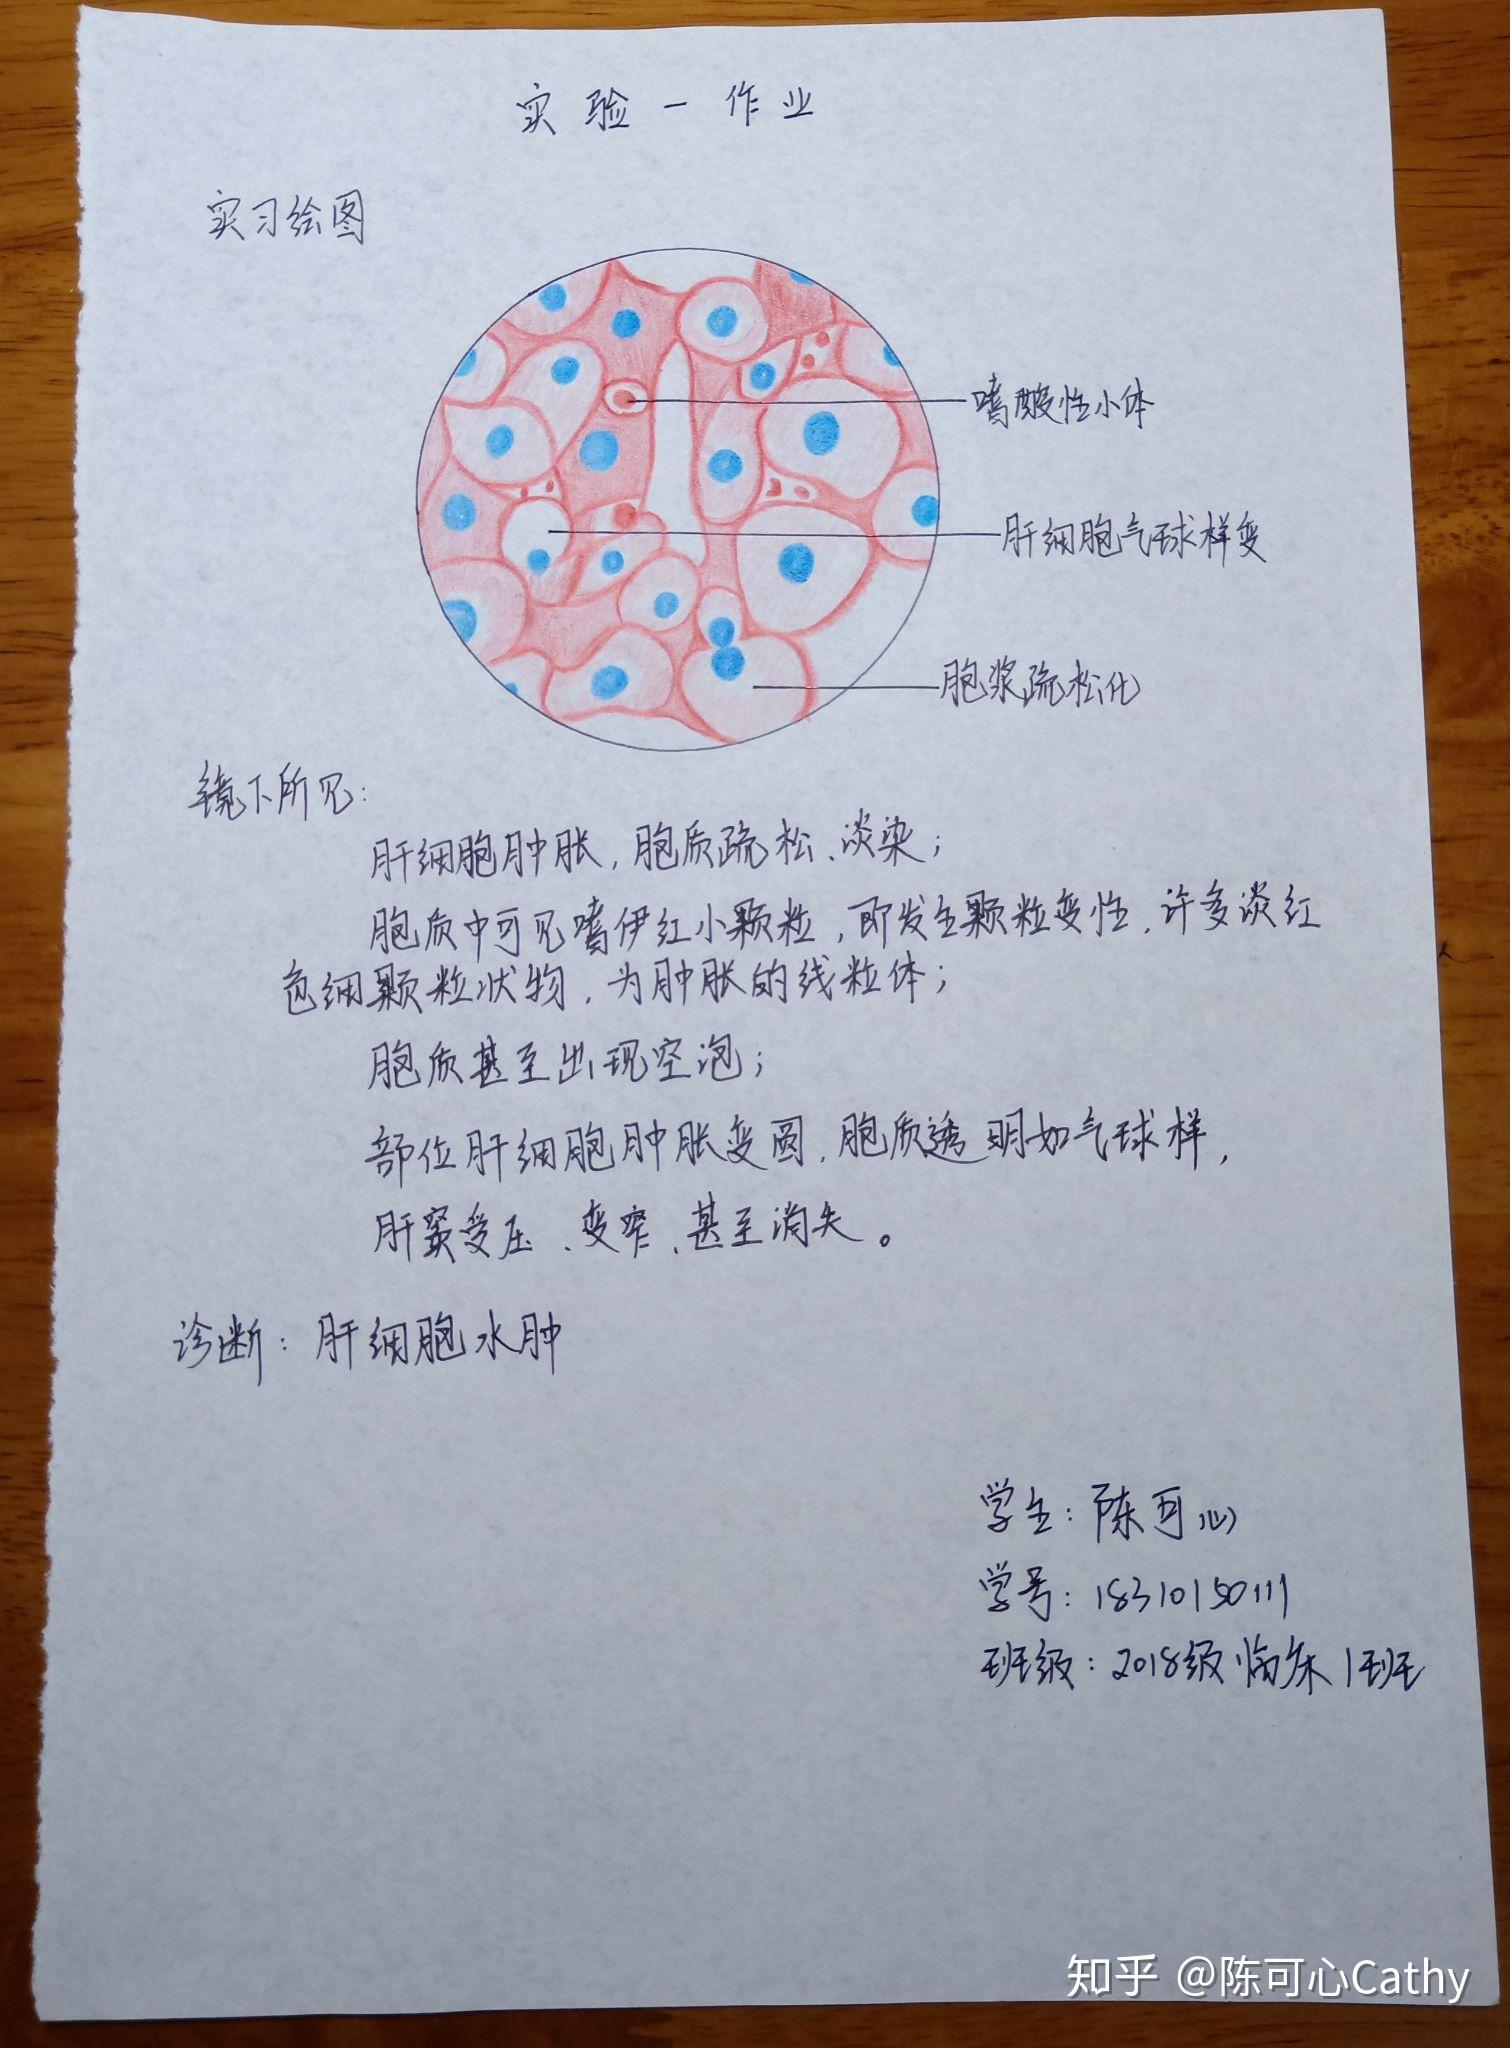 实验一作业
实习绘图
嗜酸性小体
肝细胞气球样变
胞浆疏松化
镜下所见：
肝细胞肿胀，胞质疏松、淡染；
胞质中可见嗜伊红小颗粒，即发生颗粒变性，许多淡红
色细颗粒状物，为肿胀的线粒体；
胞质甚至出现空泡；
部位肝细胞肿胀变圆，胞质透明如气球样，
肝窦受压、变窄、甚至消失。
诊断：肝细胞水肿
学生：陈可心
学号：18310150111
班级：2018级临床1班
知乎 @陈可心Cathy